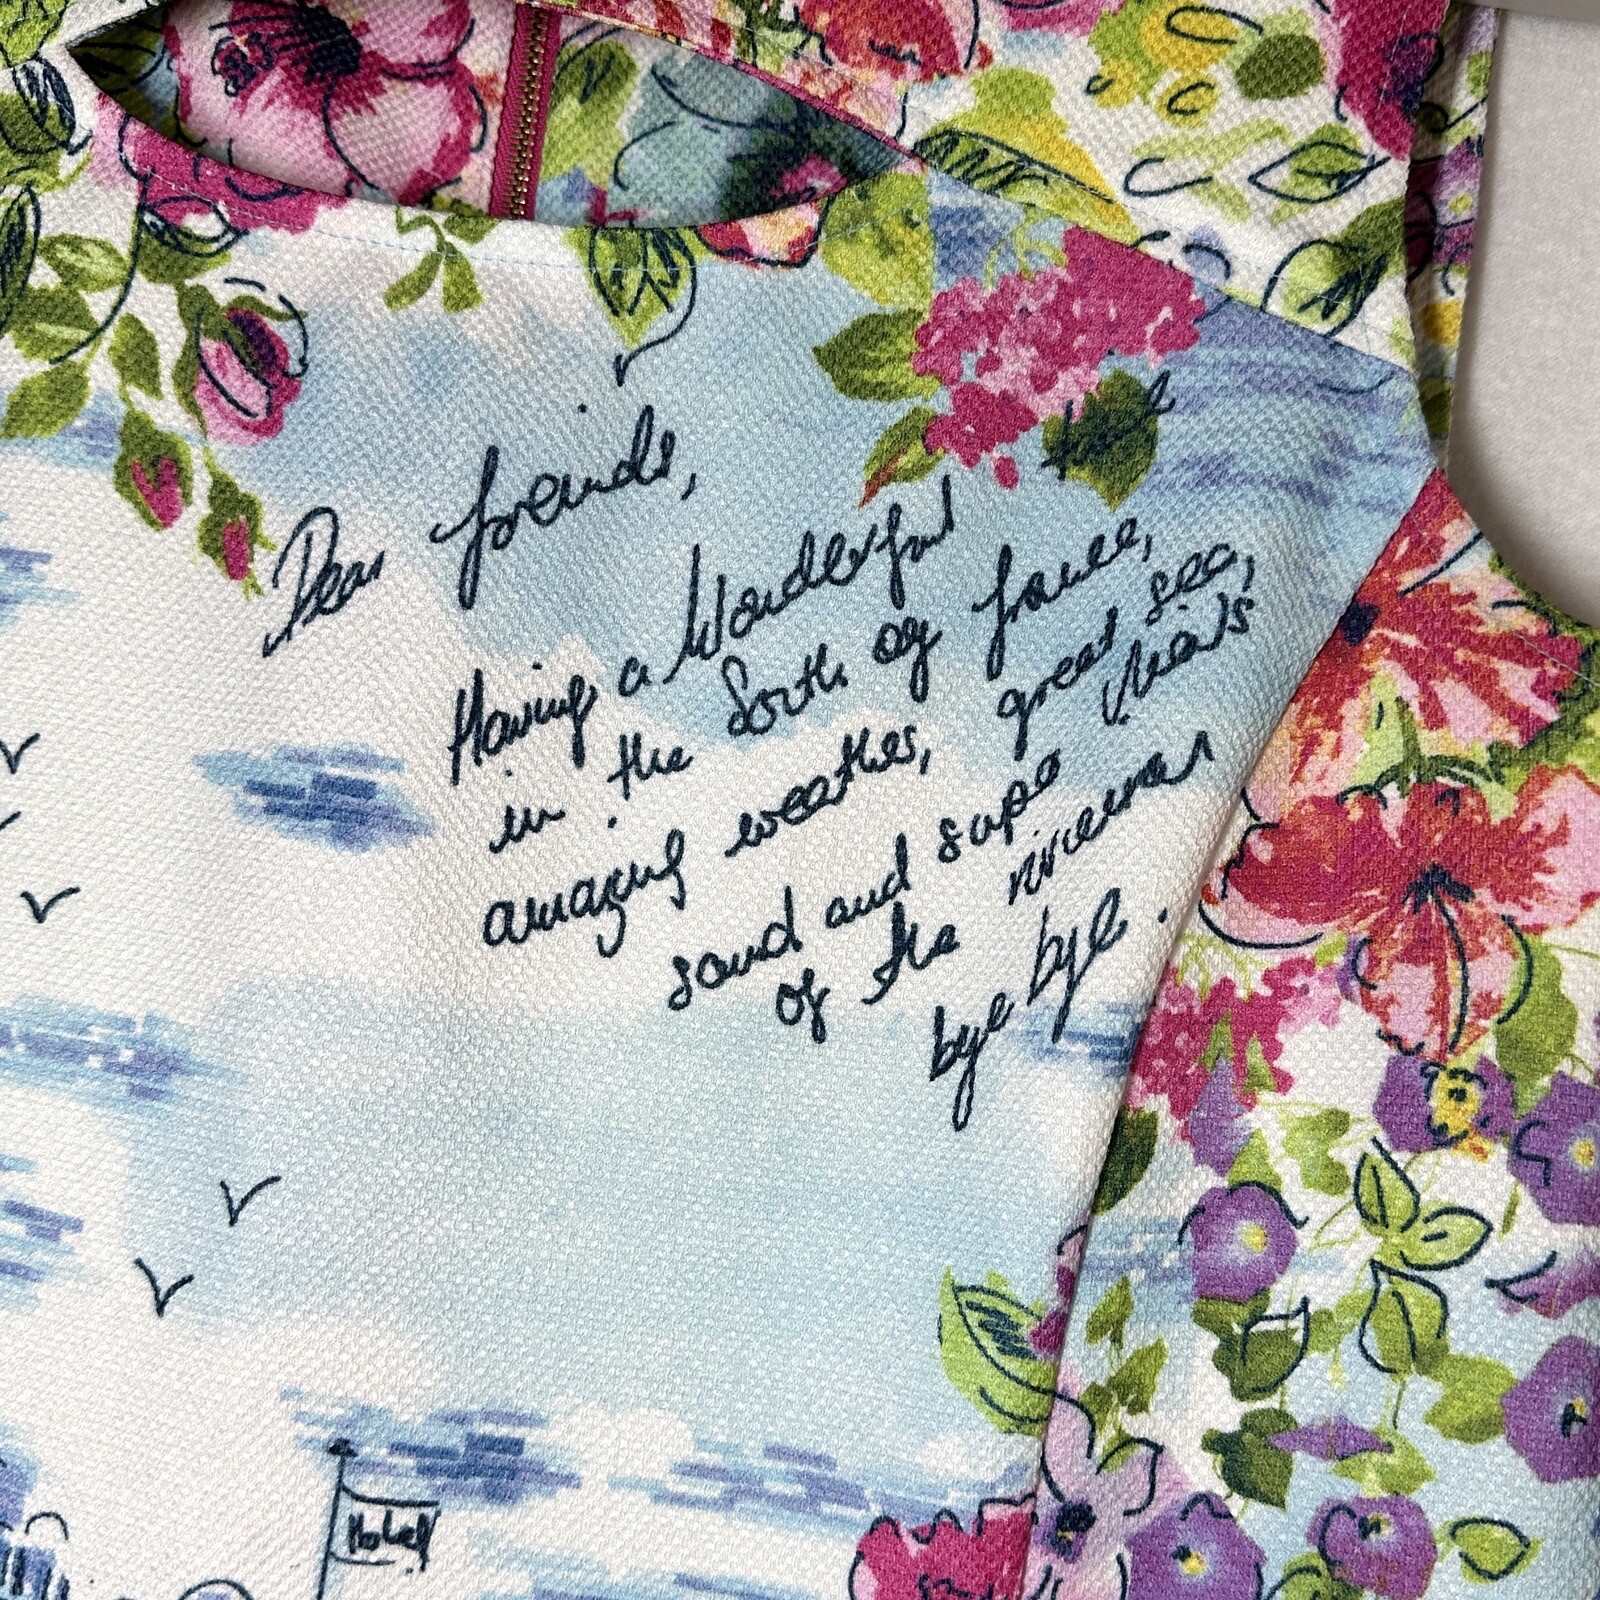 Dear freinds,
Having a Wonderful time
in the South of france,
amazing weather, great sea,
sand and supa
of the
bye bye.
Hotel